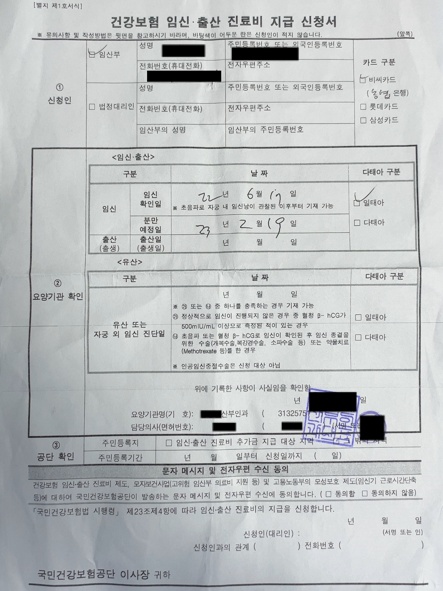 [별지 제1호서식]
건강보험 임신·출산 진료비 지급 신청서
※ 유의사항 및 작성방법은 뒷면을 참고하시기 바라며, 바탕색이 어두운 란은 신청인이 적지 않습니다. (앞쪽)
①
신청인
임산부
성명
주민등록번호 또는 외국인등록번호
전화번호(휴대전화)
전자우편주소
법정대리인
성명
주민등록번호 또는 외국인등록번호
전화번호(휴대전화)
전자우편주소
임산부의 성명
임산부의 주민등록번호
카드 구분
비씨카드
( 농협 은행)
롯데카드
삼성카드
②
요양기관 확인
<임신·출산>
구분
날 짜
다태아 구분
임신
임신
확인일
22 년 6 월 17 일
※ 초음파로 자궁 내 임신낭이 관찰된 이후부터 기재 가능
분만
예정일
23 년 2 월 19 일
일태아
다태아
출산
(출생)
출산일
(출생일)
년 월 일
<유산>
구분
날 짜
다태아 구분
유산 또는
자궁 외 임신 진단일
년 월 일
※ ㉮ 또는 ㉯ 중 하나를 충족하는 경우 기재 가능
㉮ 정상적으로 임신이 진행되지 않은 경우 중 혈청 β- hCG가
500mIU/mL 이상으로 측정된 적이 있는 경우
㉯ 초음파 또는 혈청 β- hCG로 임신이 확인된 후 임신 종결을
위한 수술(개복수술, 복강경수술, 소파수술 등) 또는 약물치료
(Methotrexate 등)를 한 경우
※ 인공임신중절수술은 신청 대상 아님
일태아
다태아
위에 기록한 사항이 사실임을 확인함
년
요양기관명(기 호): 산부인과 ( 3132575
담당의사(면허번호): (
③
공단 확인
주민등록지
임신·출산 진료비 추가금 지급 대상 지역
주민등록기간
년 월 일부터 신청일까지 ( 일)
문자 메시지 및 전자우편 수신 동의
건강보험 임신·출산 진료비 제도, 모자보건사업(고위험 임산부 의료비 지원 등) 및 고용노동부의 모성보호 제도(임신기 근로시간단축
등)에 대하여 국민건강보험공단이 발송하는 문자 메시지 및 전자우편 수신에 동의합니다. ( 동의함 동의하지 않음)
「국민건강보험법 시행령」 제23조제4항에 따라 임신·출산 진료비의 지급을 신청합니다.
년 월 일
신청인(대리인) : (서명 또는 인)
신청인과의 관계 ( ) 전화번호 ( )
국민건강보험공단 이사장 귀하